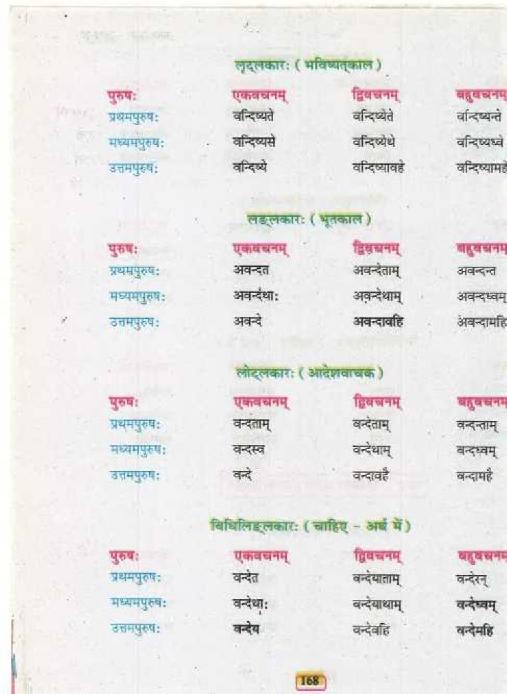 लृट्लकारः ( भविष्यत्काल )
पुरुषः एकवचनम् द्विवचनम् बहुवचनम्
प्रथमपुरुषः वन्दिष्यते वन्दिष्येते वन्दिष्यन्ते
मध्यमपुरुषः वन्दिष्यसे वन्दिष्येथे वन्दिष्यध्वे
उत्तमपुरुषः वन्दिष्ये वन्दिष्यावहे वन्दिष्यामहे
लङ्लकारः ( भूतकाल )
पुरुषः एकवचनम् द्विवचनम् बहुवचनम्
प्रथमपुरुषः अवन्दत अवन्देताम् अवन्दन्त
मध्यमपुरुषः अवन्देथाः अवन्देथाम् अवन्दध्वम्
उत्तमपुरुषः अवन्दे अवन्दावहि अवन्दामहि
लोट्लकारः ( आदेशवाचक )
पुरुषः एकवचनम् द्विवचनम् बहुवचनम्
प्रथमपुरुषः वन्दताम् वन्देताम् वन्दन्ताम्
मध्यमपुरुषः वन्दस्व वन्देथाम् वन्दध्वम्
उत्तमपुरुषः वन्दे वन्दावहै वन्दामहै
विधिलिङ्लकारः ( चाहिए - अर्थ में )
पुरुषः एकवचनम् द्विवचनम् बहुवचनम्
प्रथमपुरुषः वन्देत वन्देयाताम् वन्देरन्
मध्यमपुरुषः वन्देथाः वन्देयाथाम् वन्देध्वम्
उत्तमपुरुषः वन्देय वन्देवहि वन्देमहि
168